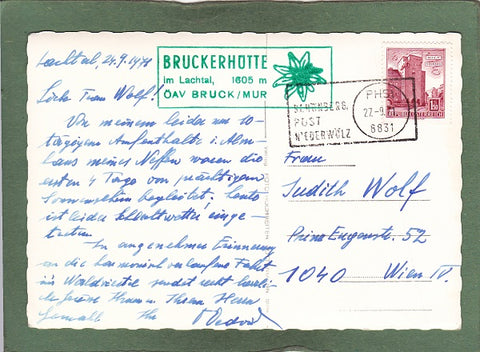 Lachtal, 24.9.1971
BRUCKERHÜTTE
im Lachtal, 1605 m
ÖAV BRUCK/MUR
Liebe Frau Wolf!
Von meinem leider nur 10-
tägigem Aufenthalte i. Alm-
haus meines Neffen waren die
ersten 4 Tage von prächtigem
Sonnenschein begleitet, heute
ist leider Schlechtwetter einge-
treten.
In angenehmer Erinnerung
an die harmonisch verlaufene Fahrt
ins Waldviertel sendet recht herzli-
che Grüsse Ihnen u. Ihrem Herrn
Gemahl Ihr
SCHÖNBERG
POST
NIEDERWÖLZ
PHST
27.-9.
8831
REPUBLIK ÖSTERREICH
Frau
Judith Wolf
Prinz Eugenstr. 52
1040 Wien IV.